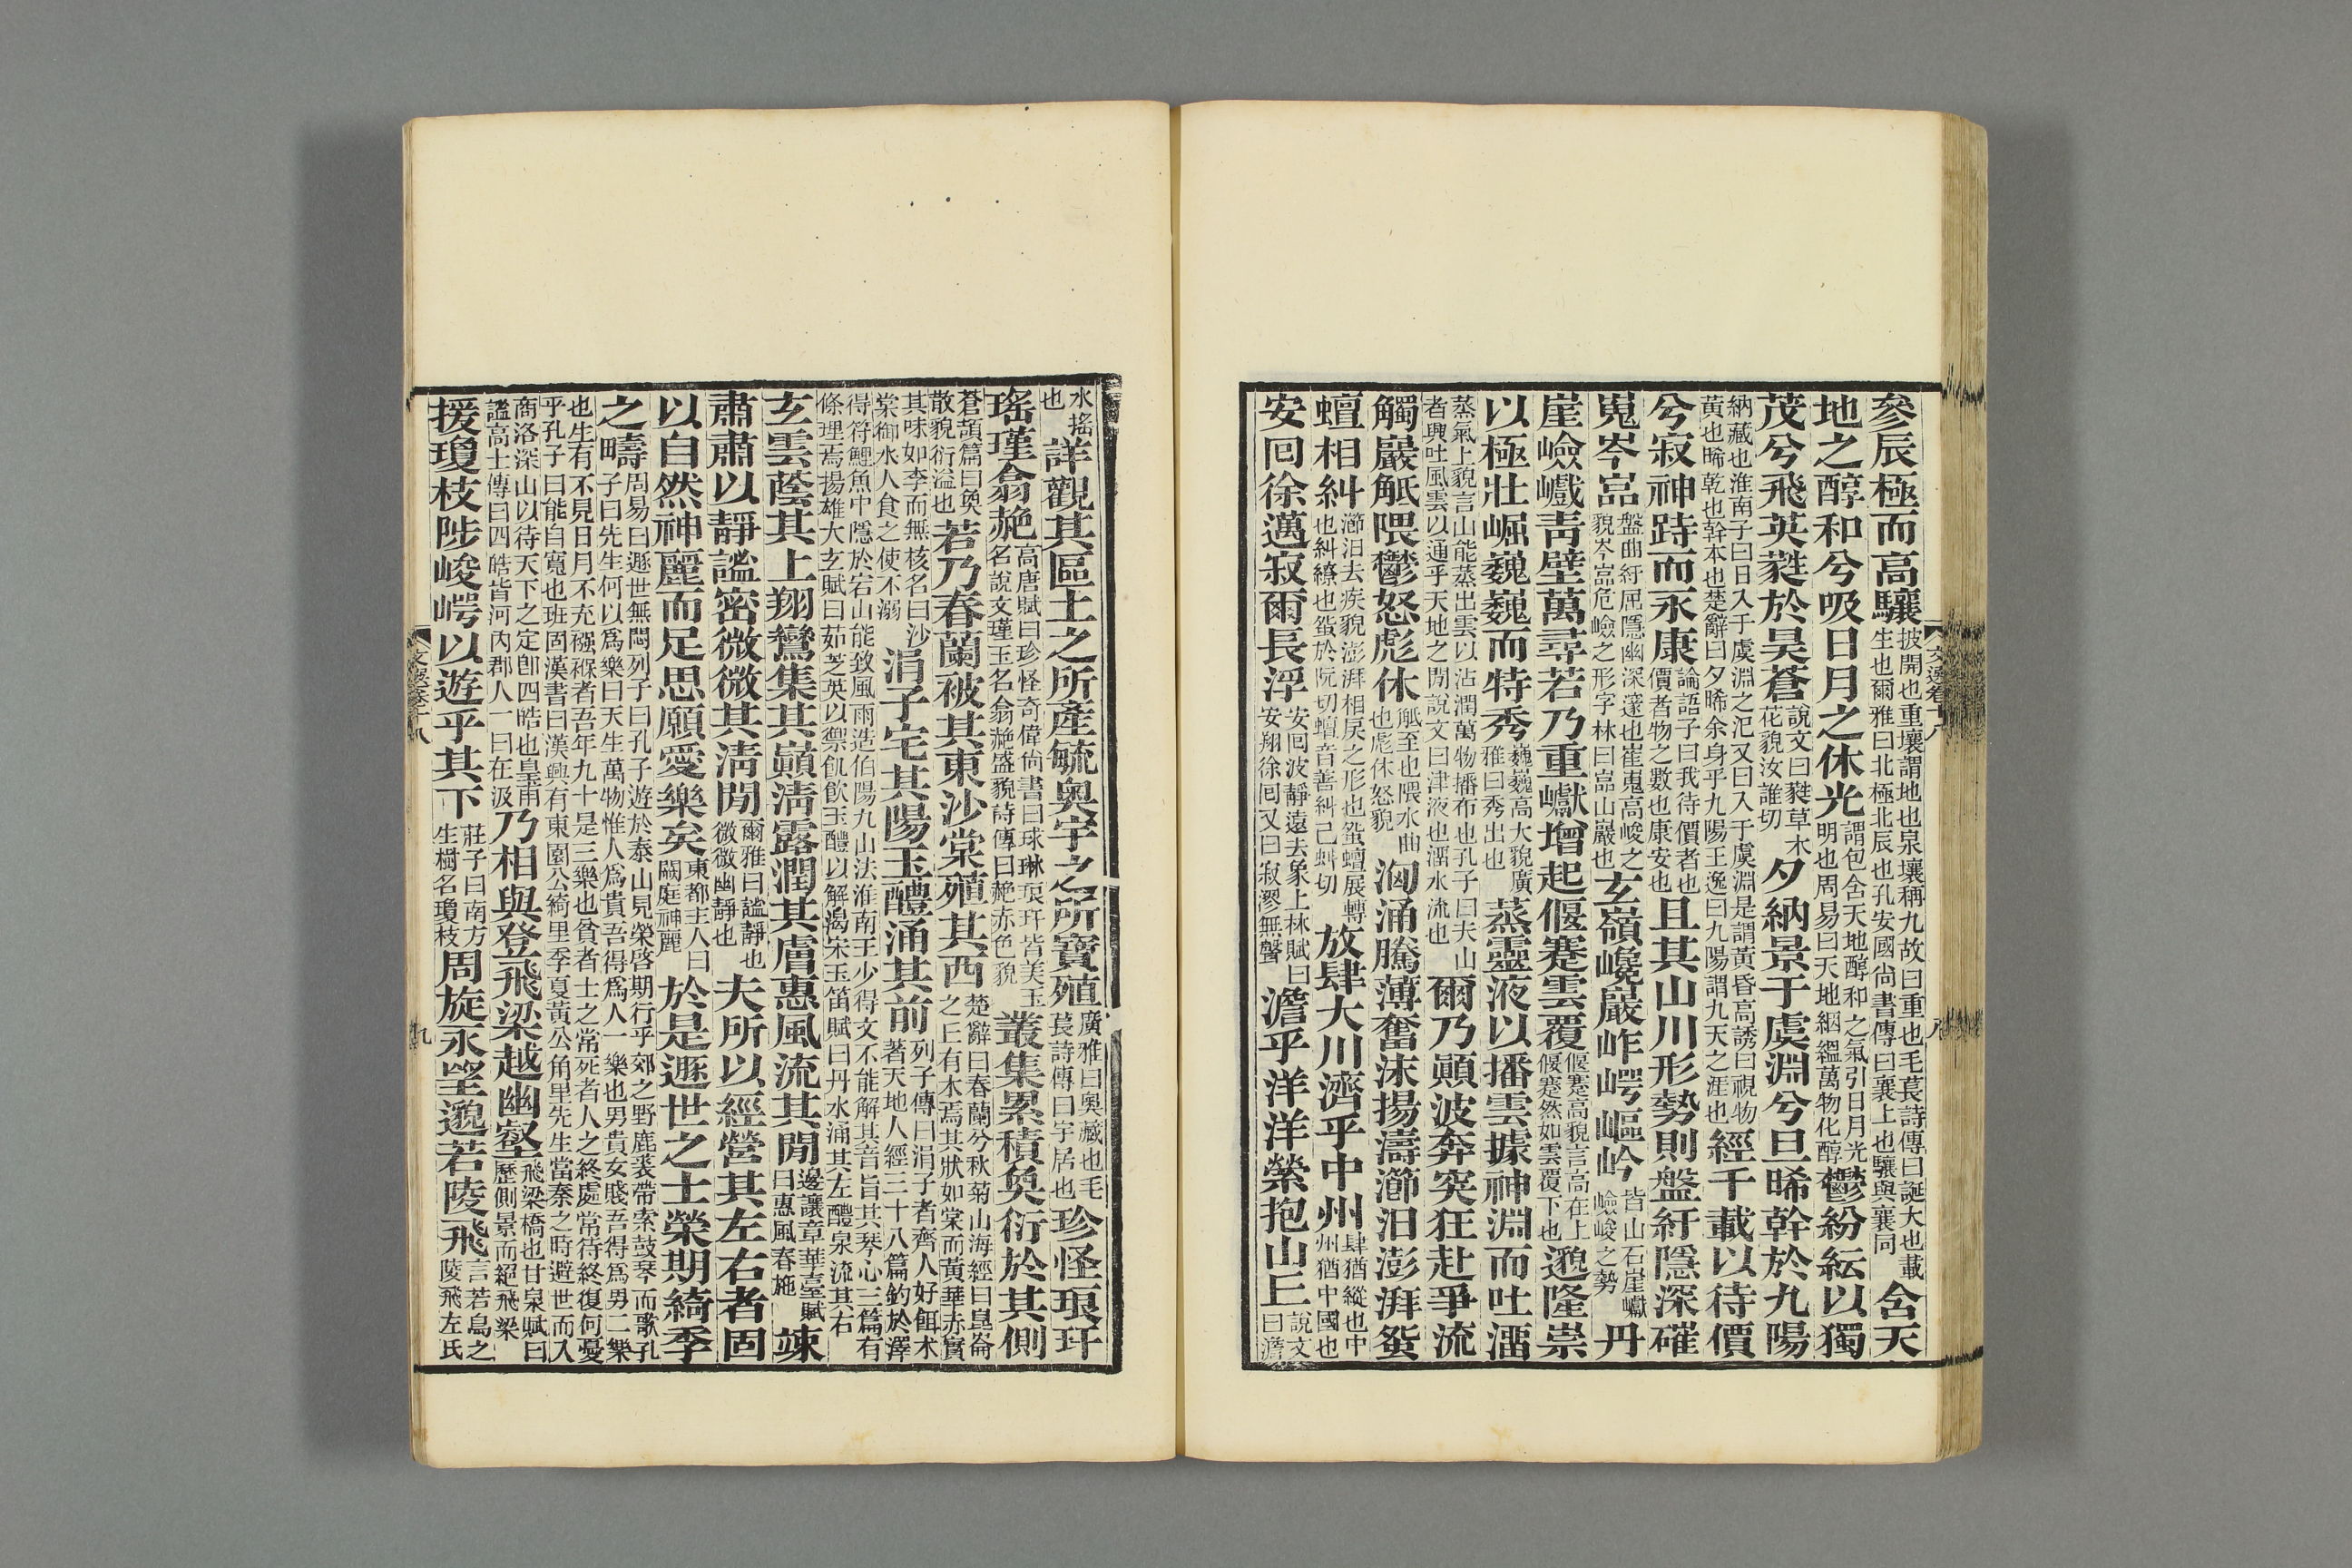 參辰極而高驤披開也重壤謂地也泉壤稱九故曰重也毛萇詩傳曰誕大也載生也爾雅曰北極北辰也孔安國尚書傳曰襄上也驤與襄同含天
地之醇和兮吸日月之休光謂包含天地醇和之氣引日月光明也周易曰天地絪縕萬物化醇鬱紛紜以獨
茂兮飛英蕤於昊蒼說文曰蕤草木花貌汝誰切夕納景于虞淵兮旦晞幹於九陽
納藏也淮南子曰日入于虞淵之汜又曰入于虞淵是謂黃昏高誘曰視物黃也晞乾也幹本也楚辭曰夕晞余身乎九陽王逸曰九陽謂九天之涯也經千載以待價
兮寂神跱而永康論語子曰我待價者也價者物之數也康安也且其山川形勢則盤紆隱深磪
嵬岑嵓盤曲紆屈隱幽深邃也崔嵬高峻之貌岑嵓危嶮之形字林曰嵓山巖也玄嶺巉巖岞崿嶇崯皆山石崖巘嶮峻之勢丹
崖嶮巇青壁萬尋若乃重巘增起偃蹇雲覆偃蹇高貌言高在上偃蹇然如雲覆下也邈隆崇
以極壯崛巍巍而特秀巍巍高大貌廣雅曰秀出也蒸靈液以播雲據神淵而吐溜
蒸氣上貌言山能蒸出雲以沾潤萬物播布也孔子曰夫山者興吐風雲以通乎天地之閒說文曰津液也溜水流也爾乃顛波奔突狂赴爭流
觸巖觝隈鬱怒彪休觝至也隈水曲也彪休怒貌洶涌騰薄奮沫揚濤瀄汨澎湃蜿
蟺相糾瀄汨去疾貌澎湃相戾之形也蜿蟺展轉也糾繚也蜿於阮切蟺音善糾己虯切放肆大川濟乎中州肆猶縱也中州猶中國也
安回徐邁寂爾長浮安回波靜遠去象上林賦曰安翔徐回又曰寂漻無聲澹乎洋洋縈抱山丘說文曰澹
文選卷十八
八
水搖也詳觀其區土之所產毓奧宇之所寶殖廣雅曰奧藏也毛萇詩傳曰宇居也珍怪琅玕
瑤瑾翕赩高唐賦曰珍怪奇偉尚書曰球琳琅玕皆美玉名說文瑾玉名翕赩盛貌詩傳曰赩赤色貌叢集累積奐衍於其側
蒼頡篇曰奐散貌衍溢也若乃春蘭被其東沙棠殖其西楚辭曰春蘭兮秋菊山海經曰崑崙之丘有木焉其狀如棠而黃華赤實
其味如李而無核名曰沙棠御水人食之使不溺涓子宅其陽玉醴涌其前列子傳曰涓子者齊人好餌术著天地人經三十八篇釣於澤
得符鯉魚中隱於宕山能致風雨造伯陽九山法淮南王少得文不能解其音旨其琴心三篇有條理焉揚雄大玄賦曰茹芝英以禦飢飲玉醴以解渴宋玉笛賦曰丹水涌其左醴泉流其右
玄雲蔭其上翔鸞集其巔清露潤其膚惠風流其閒邊讓章華臺賦曰惠風春施竦
肅肅以靜謐密微微其清閒爾雅曰謐靜也微微幽靜也夫所以經營其左右者固
以自然神麗而足思願愛樂矣東都主人曰闕庭神麗於是遯世之士榮期綺季
之疇周易曰遯世無悶列子曰孔子遊於泰山見榮啓期行乎郊之野鹿裘帶索鼓琴而歌孔子曰先生何以爲樂曰天生萬物惟人爲貴吾得爲人一樂也男貴女賤吾得爲男二樂
也生有不見日月不充襁褓者吾年九十是三樂也貧者士之常死者人之終處常待終復何憂乎孔子曰能自寬也班固漢書曰漢興有東園公綺里季夏黃公角里先生當秦之時避世而入
商洛深山以待天下之定卽四皓也皇甫謐高士傳曰四皓皆河內郡人一曰在汲乃相與登飛梁越幽壑飛梁橋也甘泉賦曰歷倒景而絕飛梁
援瓊枝陟峻崿以遊乎其下莊子曰南方生樹名瓊枝周旋永望邈若陵飛言若鳥之陵飛左氏
文選卷十八
九